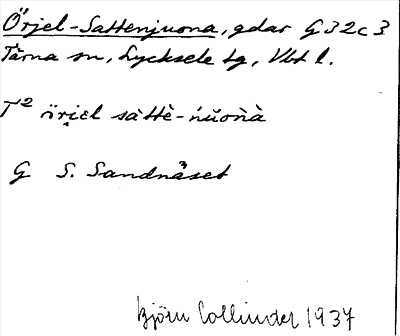 Örjel-Sattenjuona, gdar G32c3
Tärna sn, Lycksele tg, Vbt l.
T² örjel sàttè-ńŭoǹà
G S. Sandnäset
Björn Collinder 1937